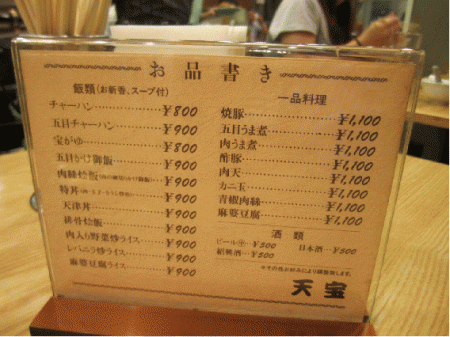 お品書き
飯類(お新香、スープ付)
チャーハン ¥800
五目チャーハン ¥900
宝がゆ ¥800
五目かけ御飯 ¥900
肉絲烩飯 ¥900
特丼 ¥900
天津丼 ¥900
排骨烩飯 ¥900
肉入り野菜炒ライス ¥900
レバニラ炒ライス ¥900
麻婆豆腐ライス ¥900
一品料理
焼豚 ¥1,100
五目うま煮 ¥1,100
肉うま煮 ¥1,100
酢豚 ¥1,100
肉天 ¥1,100
カニ玉 ¥1,100
青椒肉絲 ¥1,100
麻婆豆腐 ¥1,100
酒類
ビール㊥ ¥500 日本酒 ¥500
紹興酒 ¥500
※その他お好みにより調整致します。
天宝